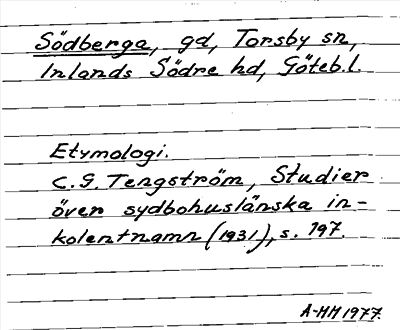 Södberga, gd, Torsby sn,
Inlands Södre hd, Göteb.l.
Etymologi.
C.G. Tengström, Studier
över sydbohuslänska in-
kolentnamn (1931), s. 197.
A-HH 1977.